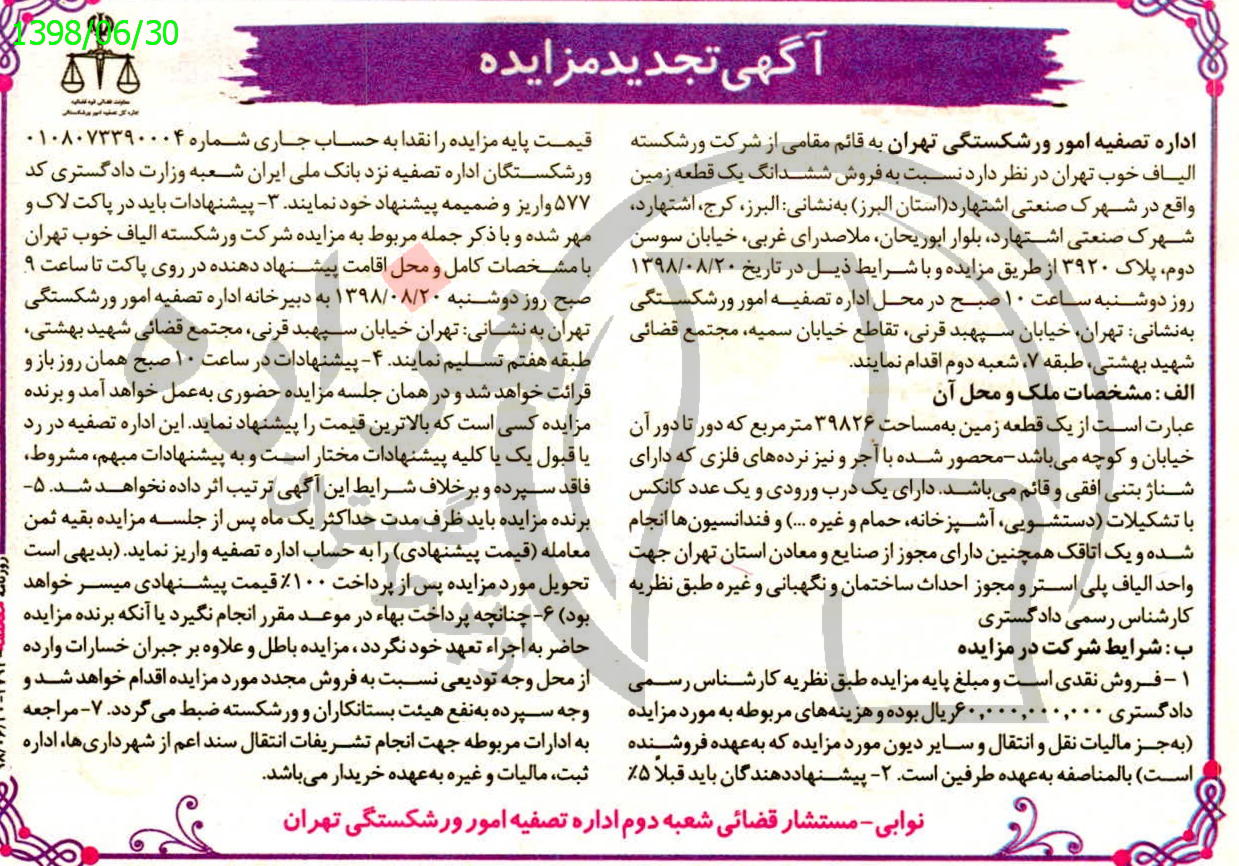 1398/06/30
آگهی تجدید مزایده
معاونت قضائی قوه قضائیه
اداره کل تصفیه امور ورشکستگی
اداره تصفیه امور ورشکستگی تهران به قائم مقامی از شرکت ورشکسته
الیاف خوب تهران در نظر دارد نسبت به فروش ششدانگ یک قطعه زمین
واقع در شهرک صنعتی اشتهارد(استان البرز) به‌نشانی: البرز، کرج، اشتهارد،
شهرک صنعتی اشتهارد، بلوار ابوریحان، ملاصدرای غربی، خیابان سوسن
دوم، پلاک ۳۹۲۰ از طریق مزایده و با شرایط ذیل در تاریخ ۱۳۹۸/۰۸/۲۰
روز دوشنبه ساعت ۱۰ صبح در محل اداره تصفیه امور ورشکستگی
به‌نشانی: تهران، خیابان سپهبد قرنی، تقاطع خیابان سمیه، مجتمع قضائی
شهید بهشتی، طبقه ۷، شعبه دوم اقدام نمایند.
الف: مشخصات ملک و محل آن
عبارت است از یک قطعه زمین به‌مساحت ۳۹۸۲۶ مترمربع که دور تا دور آن
خیابان و کوچه می‌باشد-محصور شده با آجر و نیز نرده‌های فلزی که دارای
شناژ بتنی افقی و قائم می‌باشد. دارای یک درب ورودی و یک عدد کانکس
با تشکیلات (دستشویی، آشپزخانه، حمام و غیره ...) و فندانسیون‌ها انجام
شده و یک اتاقک همچنین دارای مجوز از صنایع و معادن استان تهران جهت
واحد الیاف پلی استر و مجوز احداث ساختمان و نگهبانی و غیره طبق نظریه
کارشناس رسمی دادگستری
ب: شرایط شرکت در مزایده
۱ - فروش نقدی است و مبلغ پایه مزایده طبق نظریه کارشناس رسمی
دادگستری ۶۰,۰۰۰,۰۰۰,۰۰۰ریال بوده و هزینه‌های مربوطه به مورد مزایده
(به‌جز مالیات نقل و انتقال و سایر دیون مورد مزایده که به‌عهده فروشنده
است) بالمناصفه به‌عهده طرفین است. ۲- پیشنهاددهندگان باید قبلاً ۵٪
قیمت پایه مزایده را نقدا به حساب جاری شماره ۰۱۰۸۰۷۳۳۹۰۰۰۴
ورشکستگان اداره تصفیه نزد بانک ملی ایران شعبه وزارت دادگستری کد
۵۷۷ واریز و ضمیمه پیشنهاد خود نمایند. ۳- پیشنهادات باید در پاکت لاک و
مهر شده و با ذکر جمله مربوط به مزایده شرکت ورشکسته الیاف خوب تهران
با مشخصات کامل و محل اقامت پیشنهاد دهنده در روی پاکت تا ساعت ۹
صبح روز دوشنبه ۱۳۹۸/۰۸/۲۰ به دبیرخانه اداره تصفیه امور ورشکستگی
تهران به نشانی: تهران خیابان سپهبد قرنی، مجتمع قضائی شهید بهشتی،
طبقه هفتم تسلیم نمایند. ۴- پیشنهادات در ساعت ۱۰ صبح همان روز باز و
قرائت خواهد شد و در همان جلسه مزایده حضوری به‌عمل خواهد آمد و برنده
مزایده کسی است که بالاترین قیمت را پیشنهاد نماید. این اداره تصفیه در رد
یا قبول یک یا کلیه پیشنهادات مختار است و به پیشنهادات مبهم، مشروط،
فاقد سپرده و برخلاف شرایط این آگهی ترتیب اثر داده نخواهد شد. ۵-
برنده مزایده باید ظرف مدت حداکثر یک ماه پس از جلسه مزایده بقیه ثمن
معامله (قیمت پیشنهادی) را به حساب اداره تصفیه واریز نماید. (بدیهی است
تحویل مورد مزایده پس از پرداخت ۱۰۰٪ قیمت پیشنهادی میسر خواهد
بود) ۶- چنانچه پرداخت بهاء در موعد مقرر انجام نگیرد یا آنکه برنده مزایده
حاضر به اجراء تعهد خود نگردد، مزایده باطل و علاوه بر جبران خسارات وارده
از محل وجه تودیعی نسبت به فروش مجدد مورد مزایده اقدام خواهد شد و
وجه سپرده به‌نفع هیئت بستانکاران و ورشکسته ضبط می‌گردد. ۷-مراجعه
به ادارات مربوطه جهت انجام تشریفات انتقال سند اعم از شهرداری‌ها، اداره
ثبت، مالیات و غیره به‌عهده خریدار می‌باشد.
نوابی-مستشار قضائی شعبه دوم اداره تصفیه امور ورشکستگی تهران